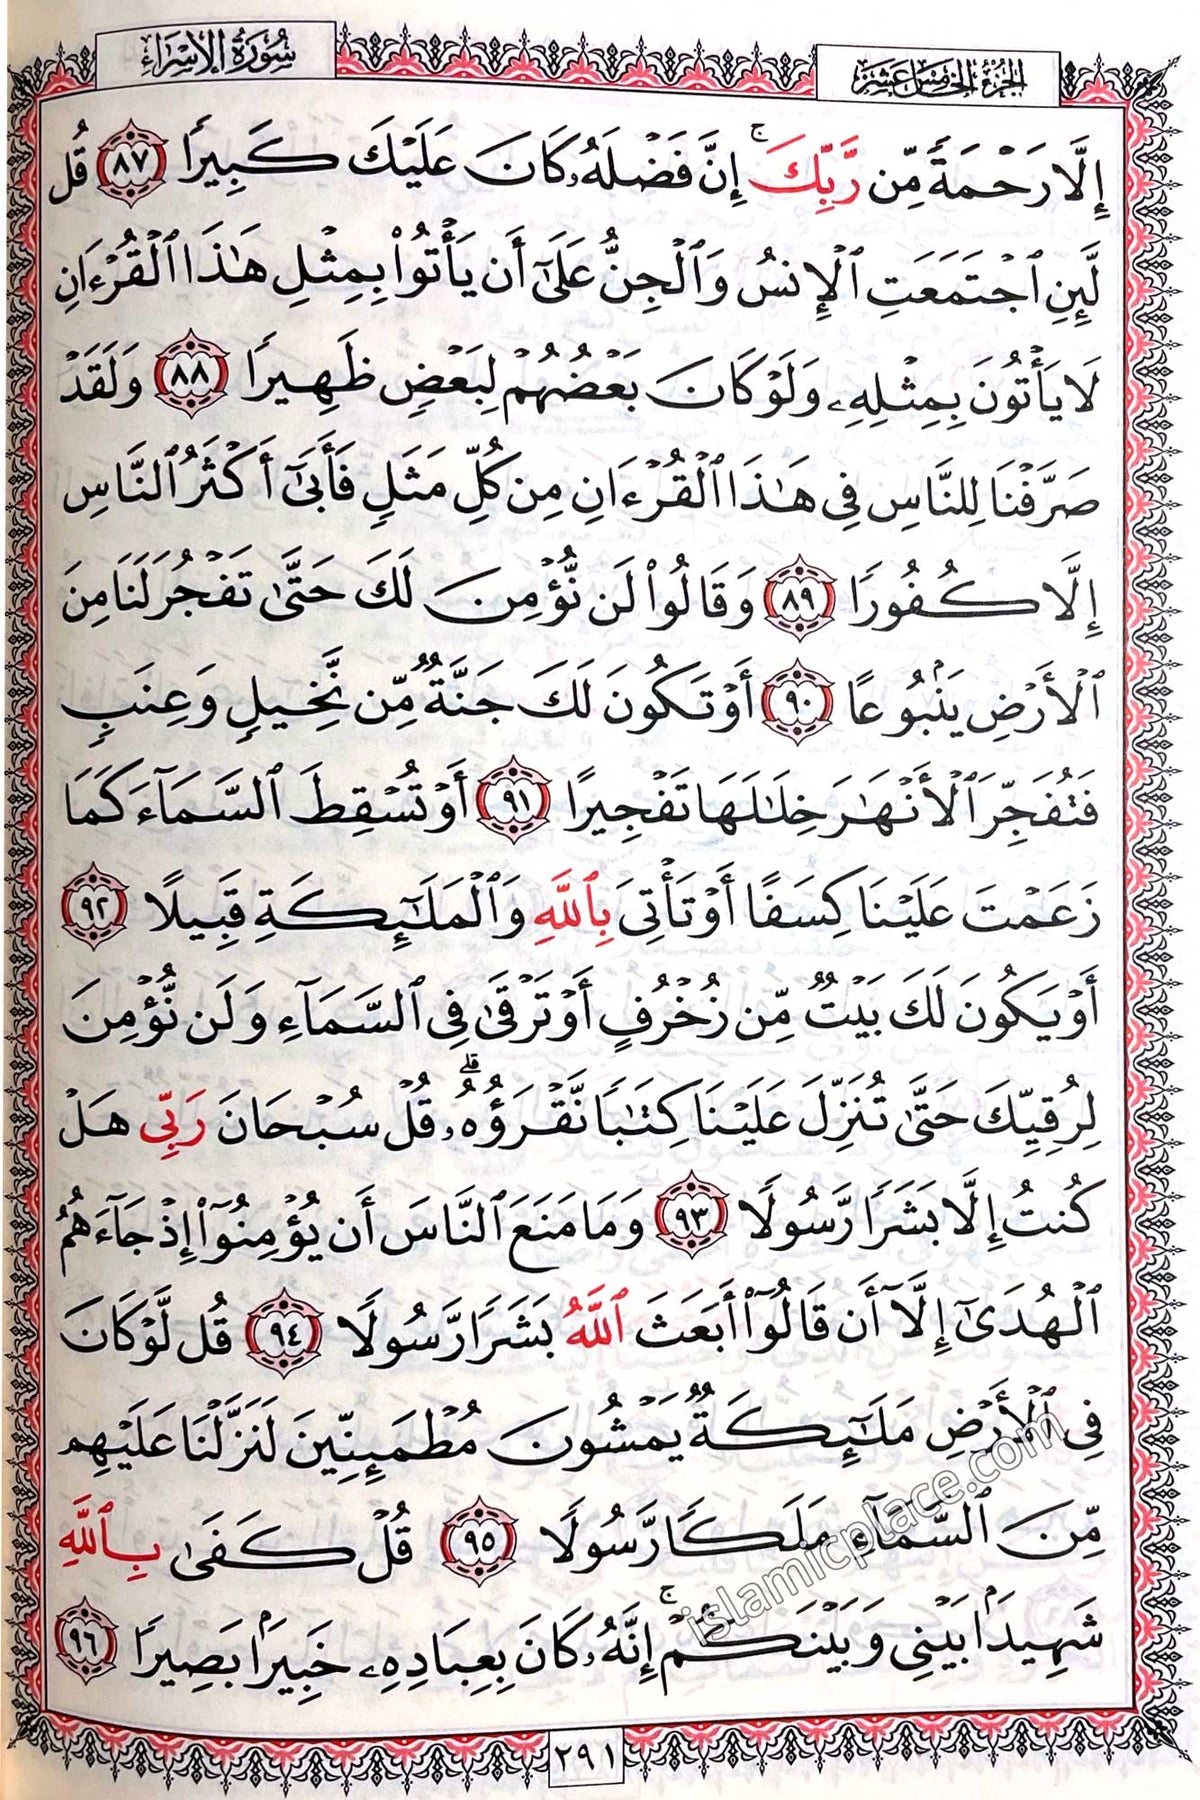 سُورَةُ الإِسْرَاءِ
الجُزْءُ الخَامِسَ عَشَرَ
إِلَّا رَحْمَةً مِّن رَّبِّكَ ۚ إِنَّ فَضْلَهُۥ كَانَ عَلَيْكَ كَبِيرًا ٨٧ قُل
لَّئِنِ ٱجْتَمَعَتِ ٱلْإِنسُ وَٱلْجِنُّ عَلَىٰٓ أَن يَأْتُوا۟ بِمِثْلِ هَٰذَا ٱلْقُرْءَانِ
لَا يَأْتُونَ بِمِثْلِهِۦ وَلَوْ كَانَ بَعْضُهُمْ لِبَعْضٍ ظَهِيرًا ٨٨ وَلَقَدْ
صَرَّفْنَا لِلنَّاسِ فِى هَٰذَا ٱلْقُرْءَانِ مِن كُلِّ مَثَلٍ فَأَبَىٰٓ أَكْثَرُ ٱلنَّاسِ
إِلَّا كُفُورًا ٨٩ وَقَالُوا۟ لَن نُّؤْمِنَ لَكَ حَتَّىٰ تَفْجُرَ لَنَا مِنَ
ٱلْأَرْضِ يَنۢبُوعًا ٩٠ أَوْ تَكُونَ لَكَ جَنَّةٌ مِّن نَّخِيلٍ وَعِنَبٍ
فَتُفَجِّرَ ٱلْأَنْهَٰرَ خِلَٰلَهَا تَفْجِيرًا ٩١ أَوْ تُسْقِطَ ٱلسَّمَآءَ كَمَا
زَعَمْتَ عَلَيْنَا كِسَفًا أَوْ تَأْتِىَ بِٱللَّهِ وَٱلْمَلَٰٓئِكَةِ قَبِيلًا ٩٢
أَوْ يَكُونَ لَكَ بَيْتٌ مِّن زُخْرُفٍ أَوْ تَرْقَىٰ فِى ٱلسَّمَآءِ وَلَن نُّؤْمِنَ
لِرُقِيِّكَ حَتَّىٰ تُنَزِّلَ عَلَيْنَا كِتَٰبًا نَّقْرَؤُهُۥ ۗ قُلْ سُبْحَانَ رَبِّى هَلْ
كُنتُ إِلَّا بَشَرًا رَّسُولًا ٩٣ وَمَا مَنَعَ ٱلنَّاسَ أَن يُؤْمِنُوٓا۟ إِذْ جَآءَهُمُ
ٱلْهُدَىٰٓ إِلَّآ أَن قَالُوٓا۟ أَبَعَثَ ٱللَّهُ بَشَرًا رَّسُولًا ٩٤ قُل لَّوْ كَانَ
فِى ٱلْأَرْضِ مَلَٰٓئِكَةٌ يَمْشُونَ مُطْمَئِنِّينَ لَنَزَّلْنَا عَلَيْهِم
مِّنَ ٱلسَّمَآءِ مَلَكًا رَّسُولًا ٩٥ قُلْ كَفَىٰ بِٱللَّهِ
شَهِيدًۢا بَيْنِى وَبَيْنَكُمْ ۚ إِنَّهُۥ كَانَ بِعِبَادِهِۦ خَبِيرًۢا بَصِيرًا ٩٦
٢٩١
islamicplace.com